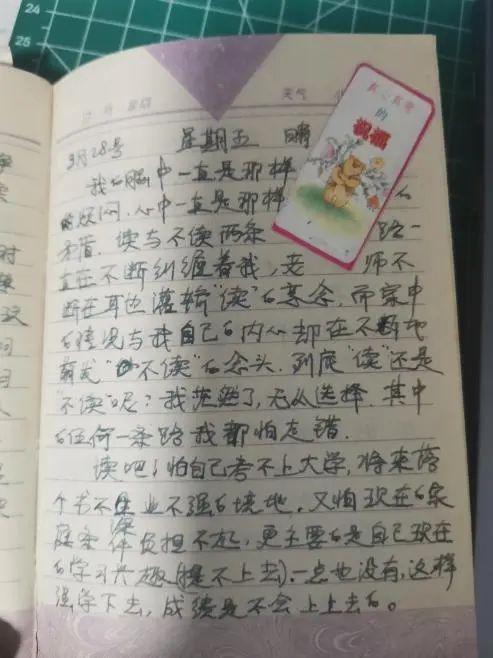 24
25
天气
的
祝福
3月28号 星期五 晴
我的脑中一直是那样
的烦闷,心中一直是那样 的
矛盾. 读与不读两条 路一
直在不断纠缠着我,老 师不
断在耳边灌输"读"的意念,而家中
的情况与我自己的内心却在不断地
萌发"不读"的念头. 到底"读"还是
"不读"呢?我茫然了,无从选择. 其中
的任何一条路我都怕走错.
读吧!怕自己考不上大学,将来落
个书不业不强的境地. 又怕现在的家
庭条件负担不起,更主要的是自己现在
的学习兴趣(提不上去).一点也没有,这样
强学下去,成绩是不会上上去的。